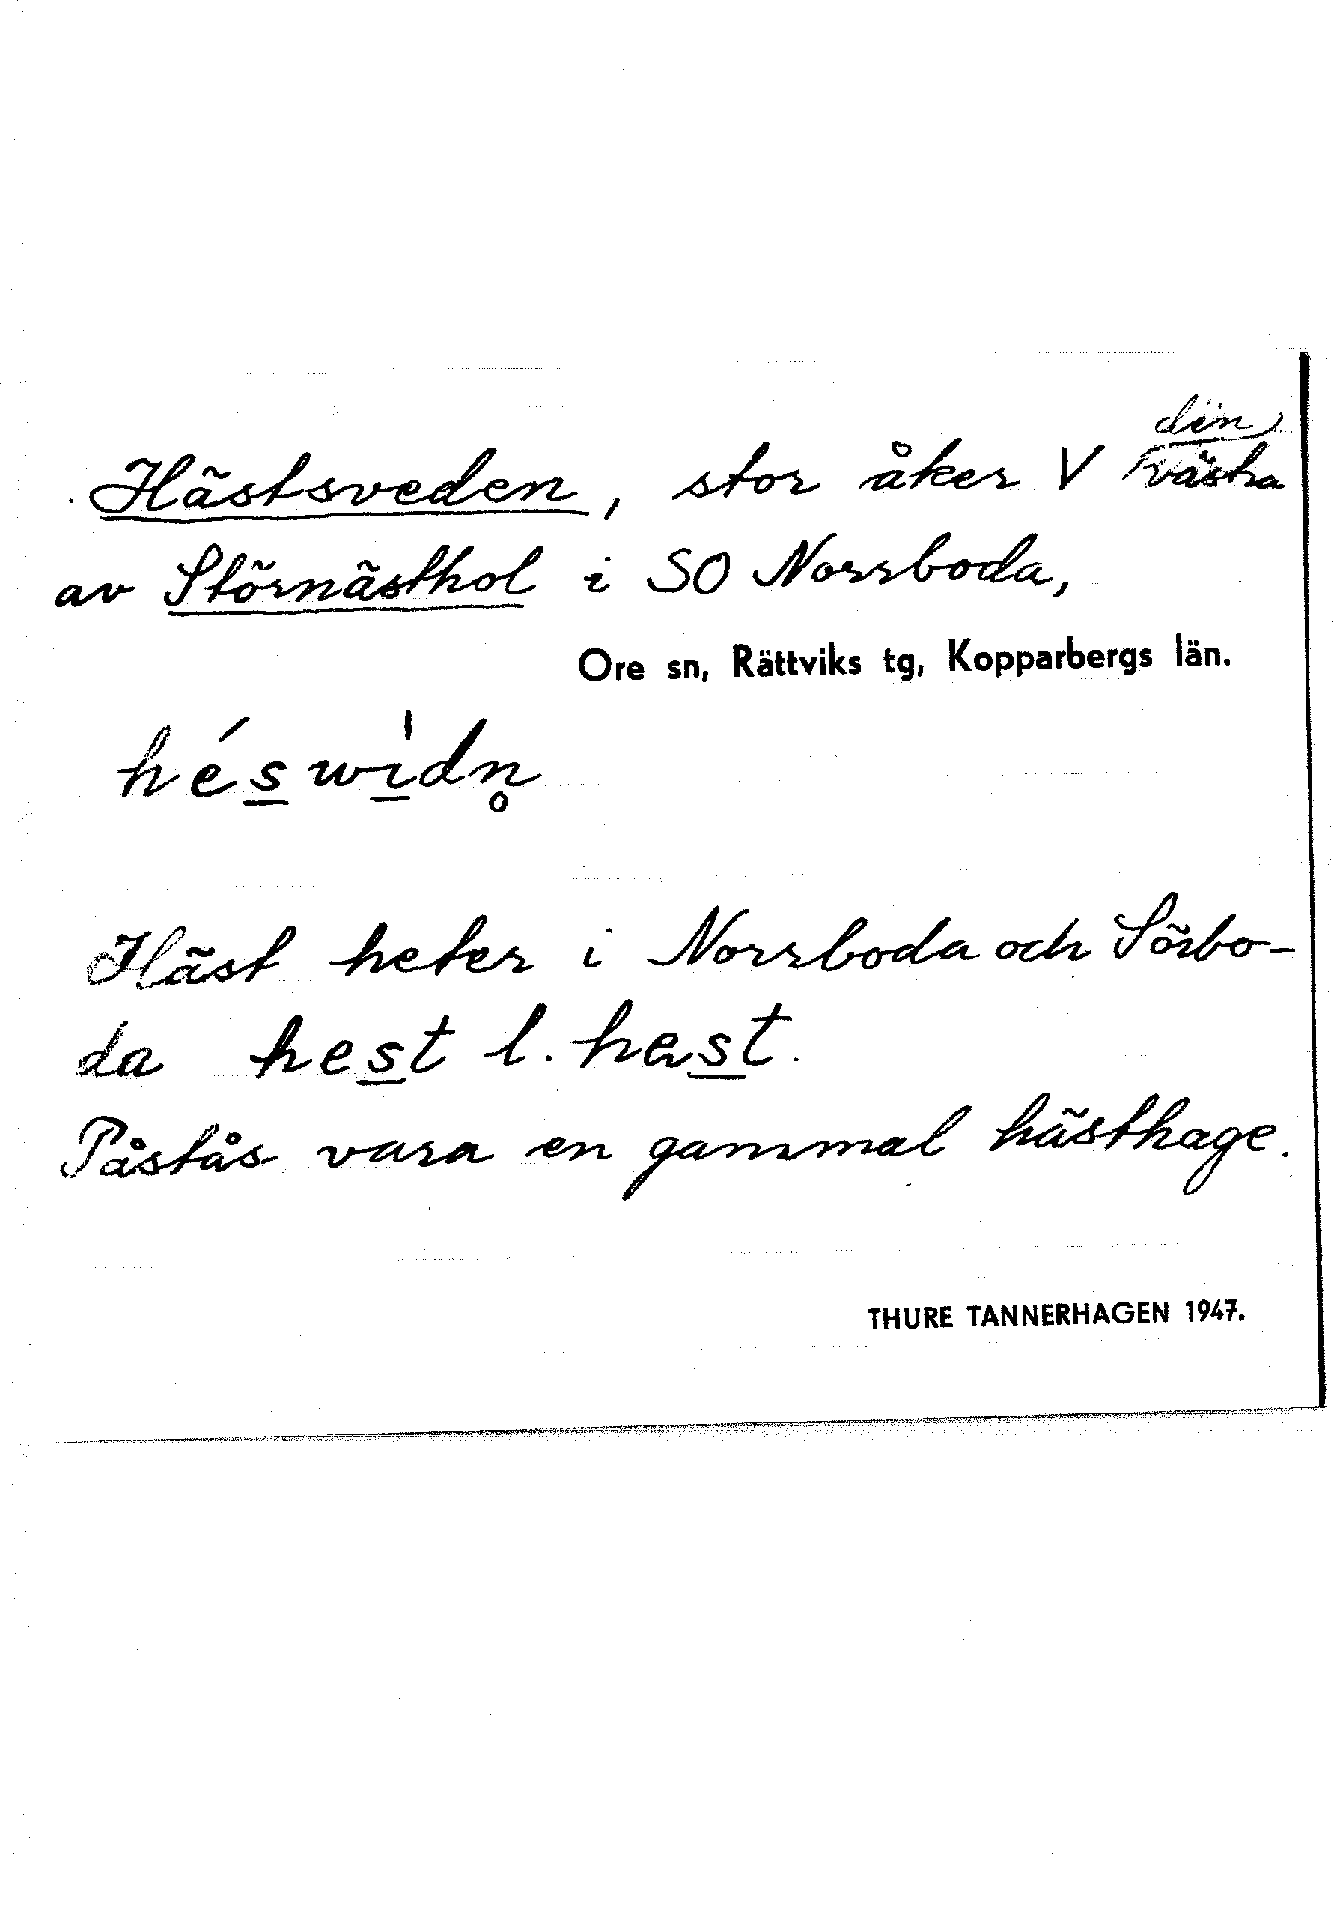 den
Hästsveden, stor åker V västra
av Störnästhol i SO Norrboda,
Ore sn, Rättviks tg, Kopparbergs län.
héswìdn̥
Häst heter i Norrboda och Sörbo-
da hest l. hæst.
Påstås vara en gammal hästhage.
THURE TANNERHAGEN 1947.